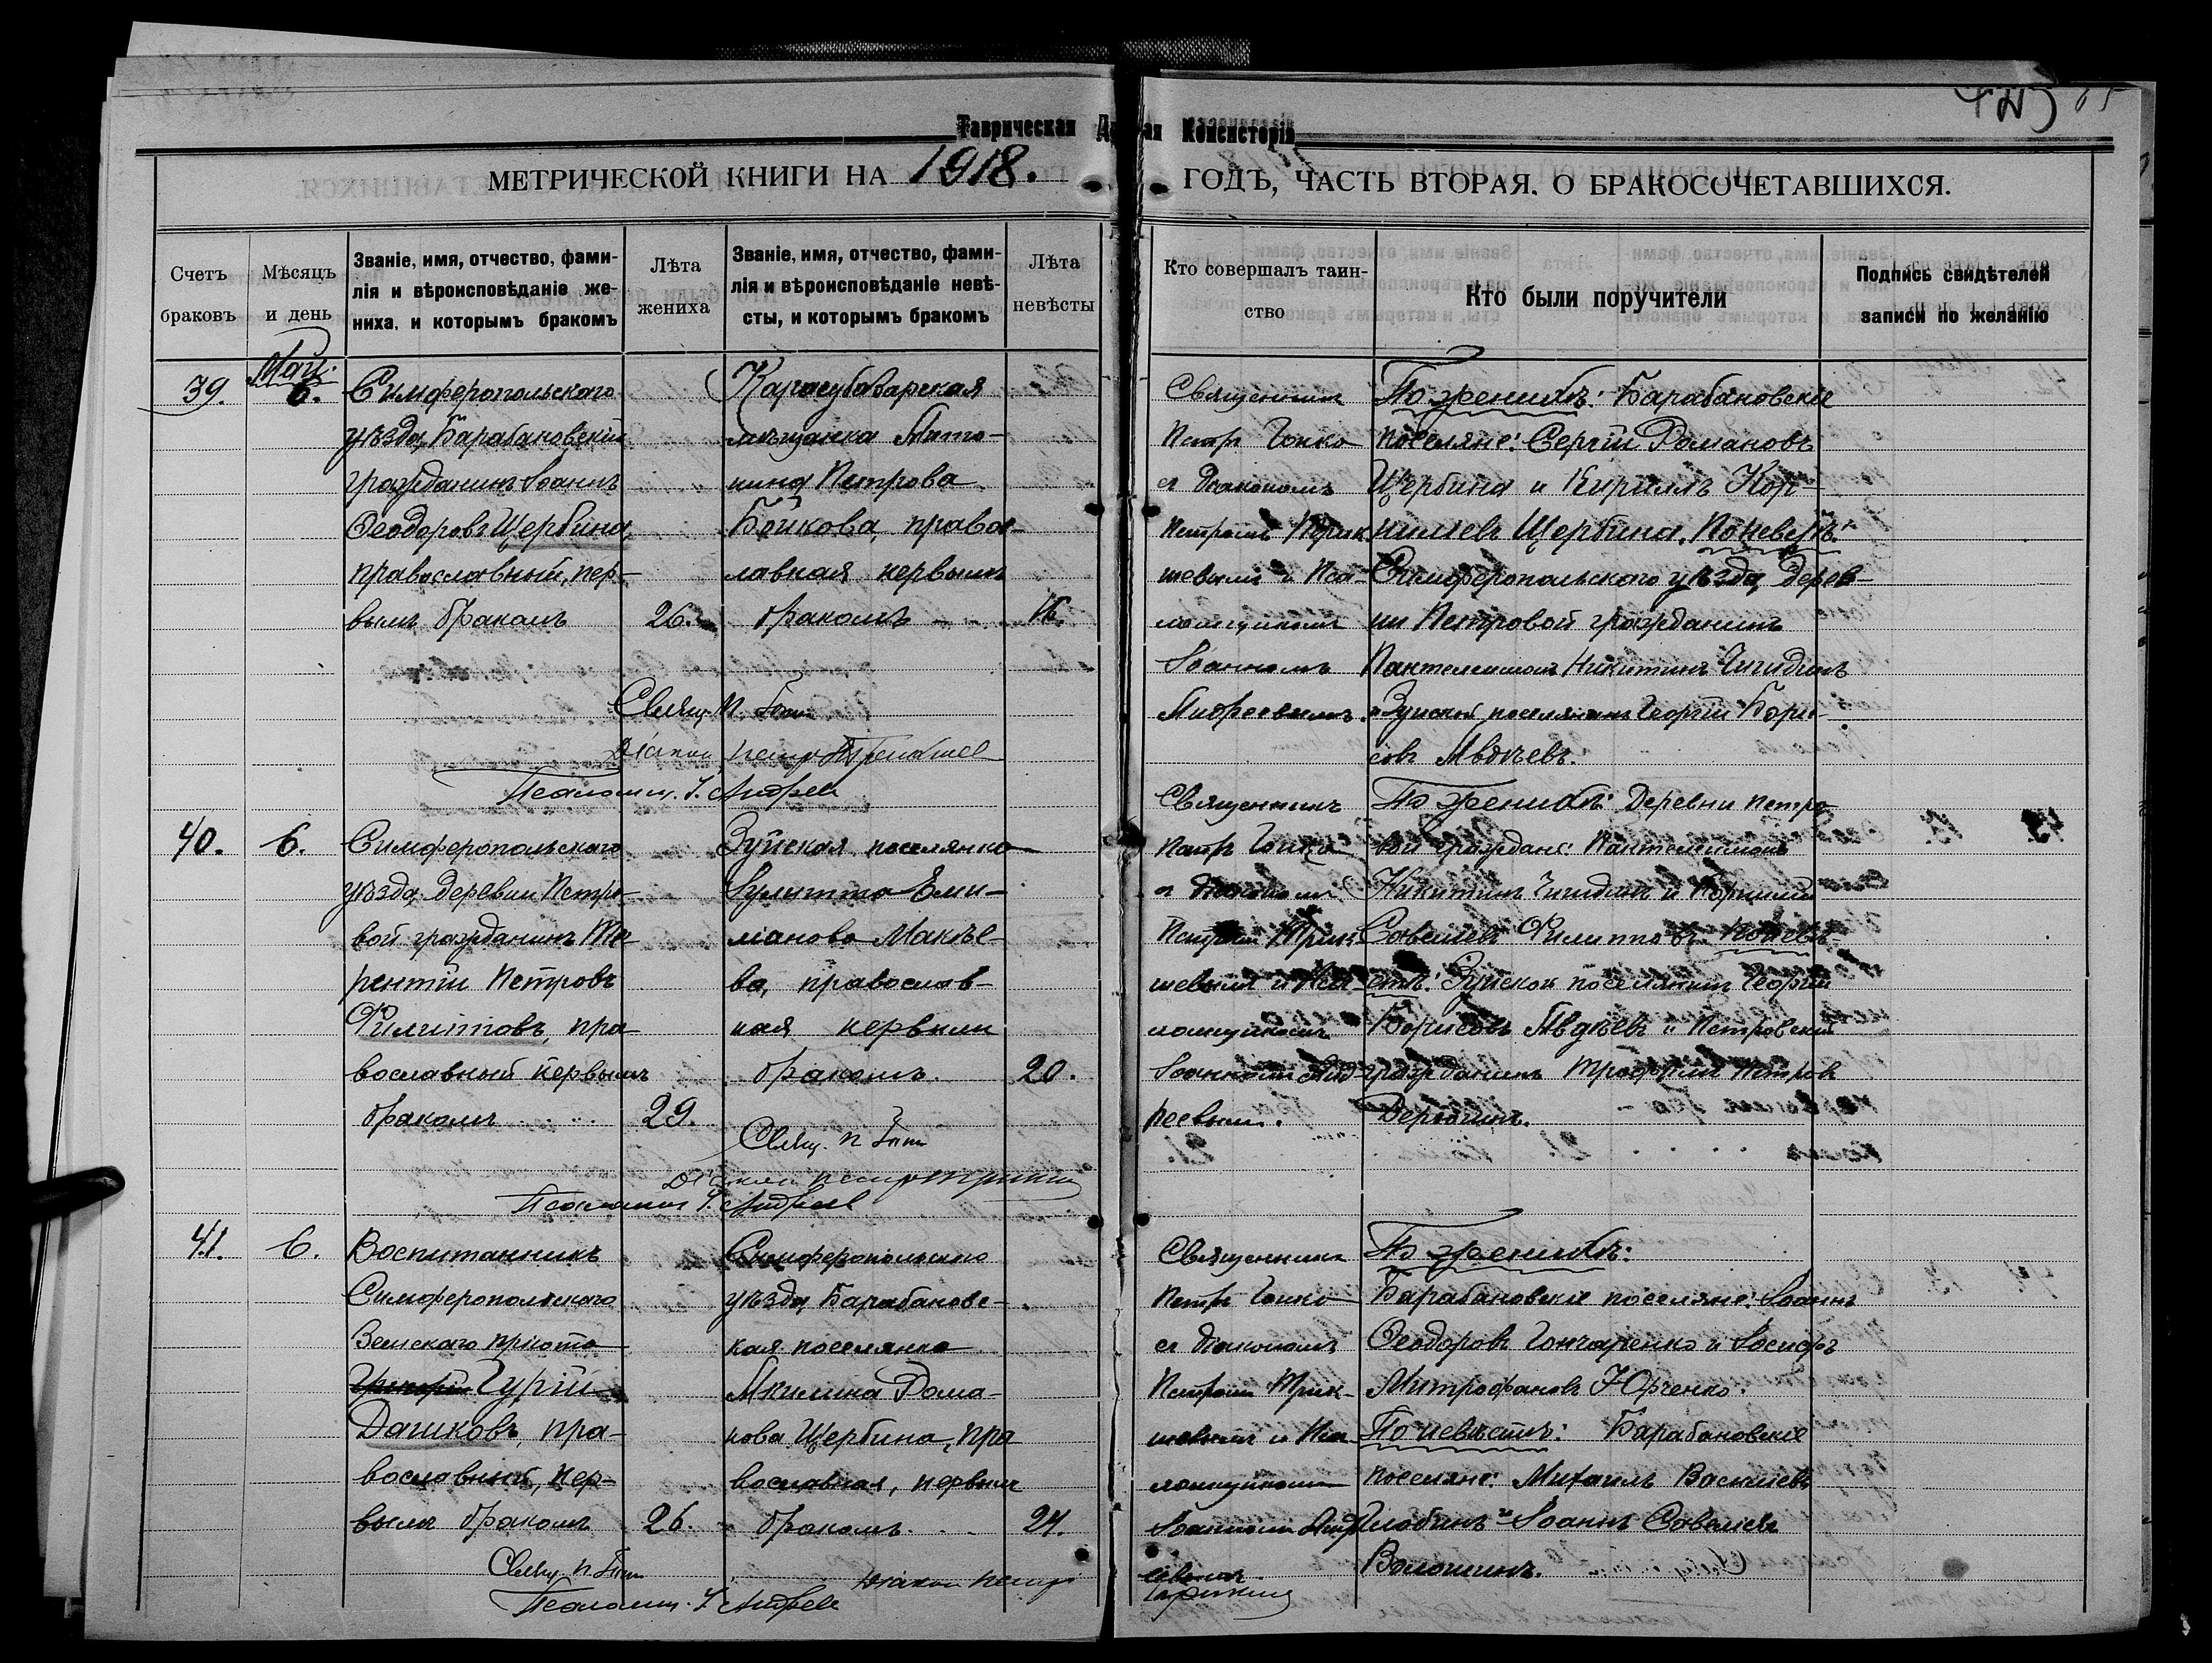 Таврическая
Консисторія
МЕТРИЧЕСКОЙ КНИГИ НА 1918.
ГОДЪ, ЧАСТЬ ВТОРАЯ. О БРАКОСОЧЕТАВШИХСЯ.
Счетъ браковъ
Мѣсяцъ и день
Званіе, имя, отчество, фами-
лія и вѣроисповѣданіе же-
ниха, и которымъ бракомъ
Лѣта жениха
Званіе, имя, отчество, фами-
лія и вѣроисповѣданіе невѣ-
сты, и которымъ бракомъ
Лѣта невѣсты
Кто совершалъ таин-
ство
Кто были поручители
Подпись свидѣтелей
записи по желанію
39.
Май.
6.
Симферопольскаго
уѣзда, Барабановскій
гражданинъ Іоаннъ
Ѳеодоровъ Щербина,
православный, пер-
вымъ бракомъ
26.
Карасубазарская
мѣщанка
Петрова
Бойкова, правос-
лавная первымъ
бракомъ
16.
Священникъ
Петръ Гонко
съ діакономъ
Петромъ
шевымъ и Пса-
ломщикомъ
Іоанномъ
Андреевымъ.
По женихѣ: Барабановскіе
поселяне: Сергій Романовъ
Щербина и Кириллъ Кор-
ниліевъ Щербина. По невѣстѣ:
Симферопольскаго уѣзда, дерев-
ни Петровой гражданинъ
Пантелеимонъ Никитинъ
и Зуйской поселянинъ Георгій Бори-
совъ Авдѣевъ.
Свящ. П. Гонко
Діакон Петр
Псаломщ. І. Андреев
40.
6.
Симферопольскаго
уѣзда, деревни Петро-
вой гражданинъ Те-
рентій Петровъ
Филипповъ, пра-
вославный первымъ
бракомъ
29.
Зуйская поселянка
Іулитта Еми-
ліанова Макѣе-
ва, православ-
ная первымъ
бракомъ
20.
Священникъ
Петръ Гонко
съ діакономъ
Петромъ Трик-
шевымъ и Пса-
ломщикомъ
Іоанномъ Анд-
реевымъ.
По женихѣ: Деревни Петро-
вой граждане: Пантелеимонъ
Никитинъ и
Савеліевъ Филипповъ. По невѣ-
стѣ: Зуйской поселянинъ Георгій
Борисовъ Авдѣевъ и Петровскій
гражданинъ Трофимъ Петровъ
Свящ. П. Гонко
Діакон Петр
Псаломщ. І. Андреев
41.
6.
Воспитанникъ
Симферопольскаго
Земскаго пріюта
Гурій
Дашковъ, пра-
вославный, пер-
вымъ бракомъ
26.
Симферопольскаго
уѣзда, Барабановс-
кая поселянка
Акилина Рома-
нова Щербина, пра-
вославная, первымъ
бракомъ
24.
Священникъ
Петръ Гонко
съ діакономъ
Петромъ Трик-
шевымъ и Пса-
ломщикомъ
Іоанномъ Анд-
реевымъ.
По женихѣ:
Барабановскіе поселяне: Іоаннъ
Ѳеодоровъ Гончаренко и Іосифъ
Митрофановъ Юрченко.
По невѣстѣ: Барабановскіе
поселяне: Михаилъ Василіевъ
Злобинъ и Іоаннъ Савеліевъ
Волошинъ.
Свящ. П. Гонко
Діакон Петр
Псаломщ. І. Андреев